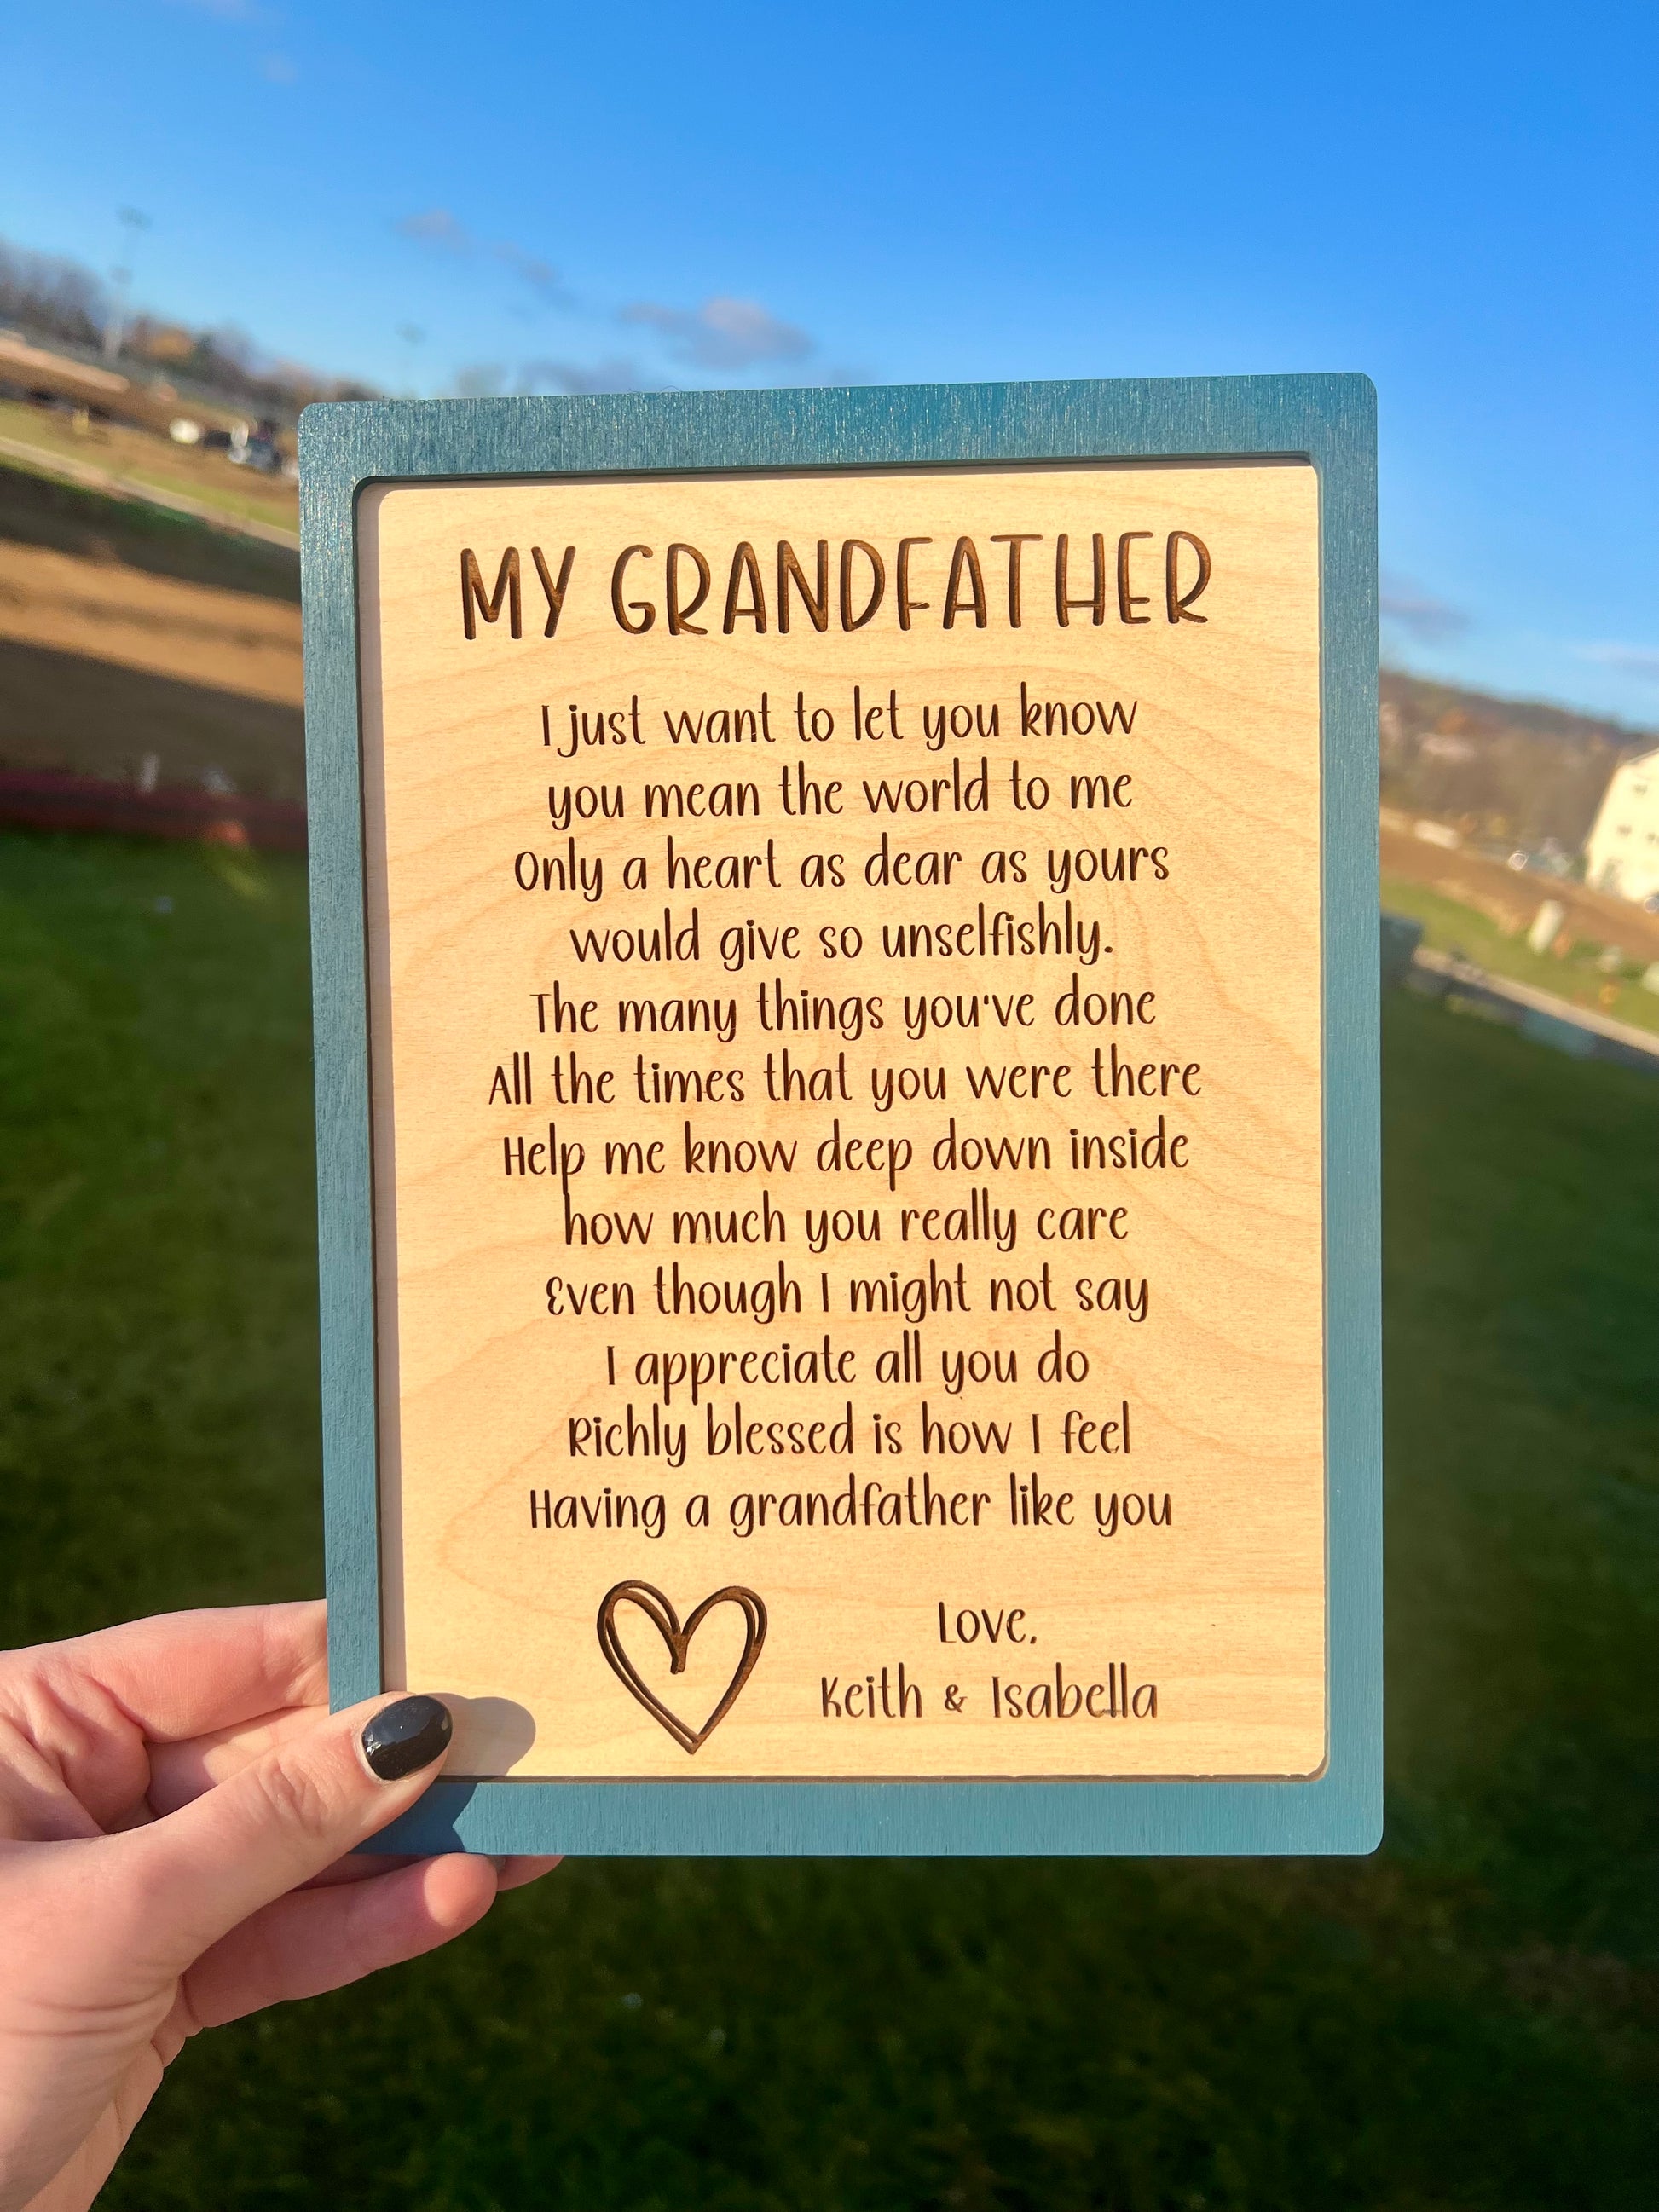 MY GRANDFATHER
I just want to let you know
you mean the world to me
Only a heart as dear as yours
would give so unselfishly.
The many things you've done
All the times that you were there
Help me know deep down inside
how much you really care
Even though I might not say
I appreciate all you do
Richly blessed is how I feel
Having a grandfather like you
Love,
Keith & Isabella